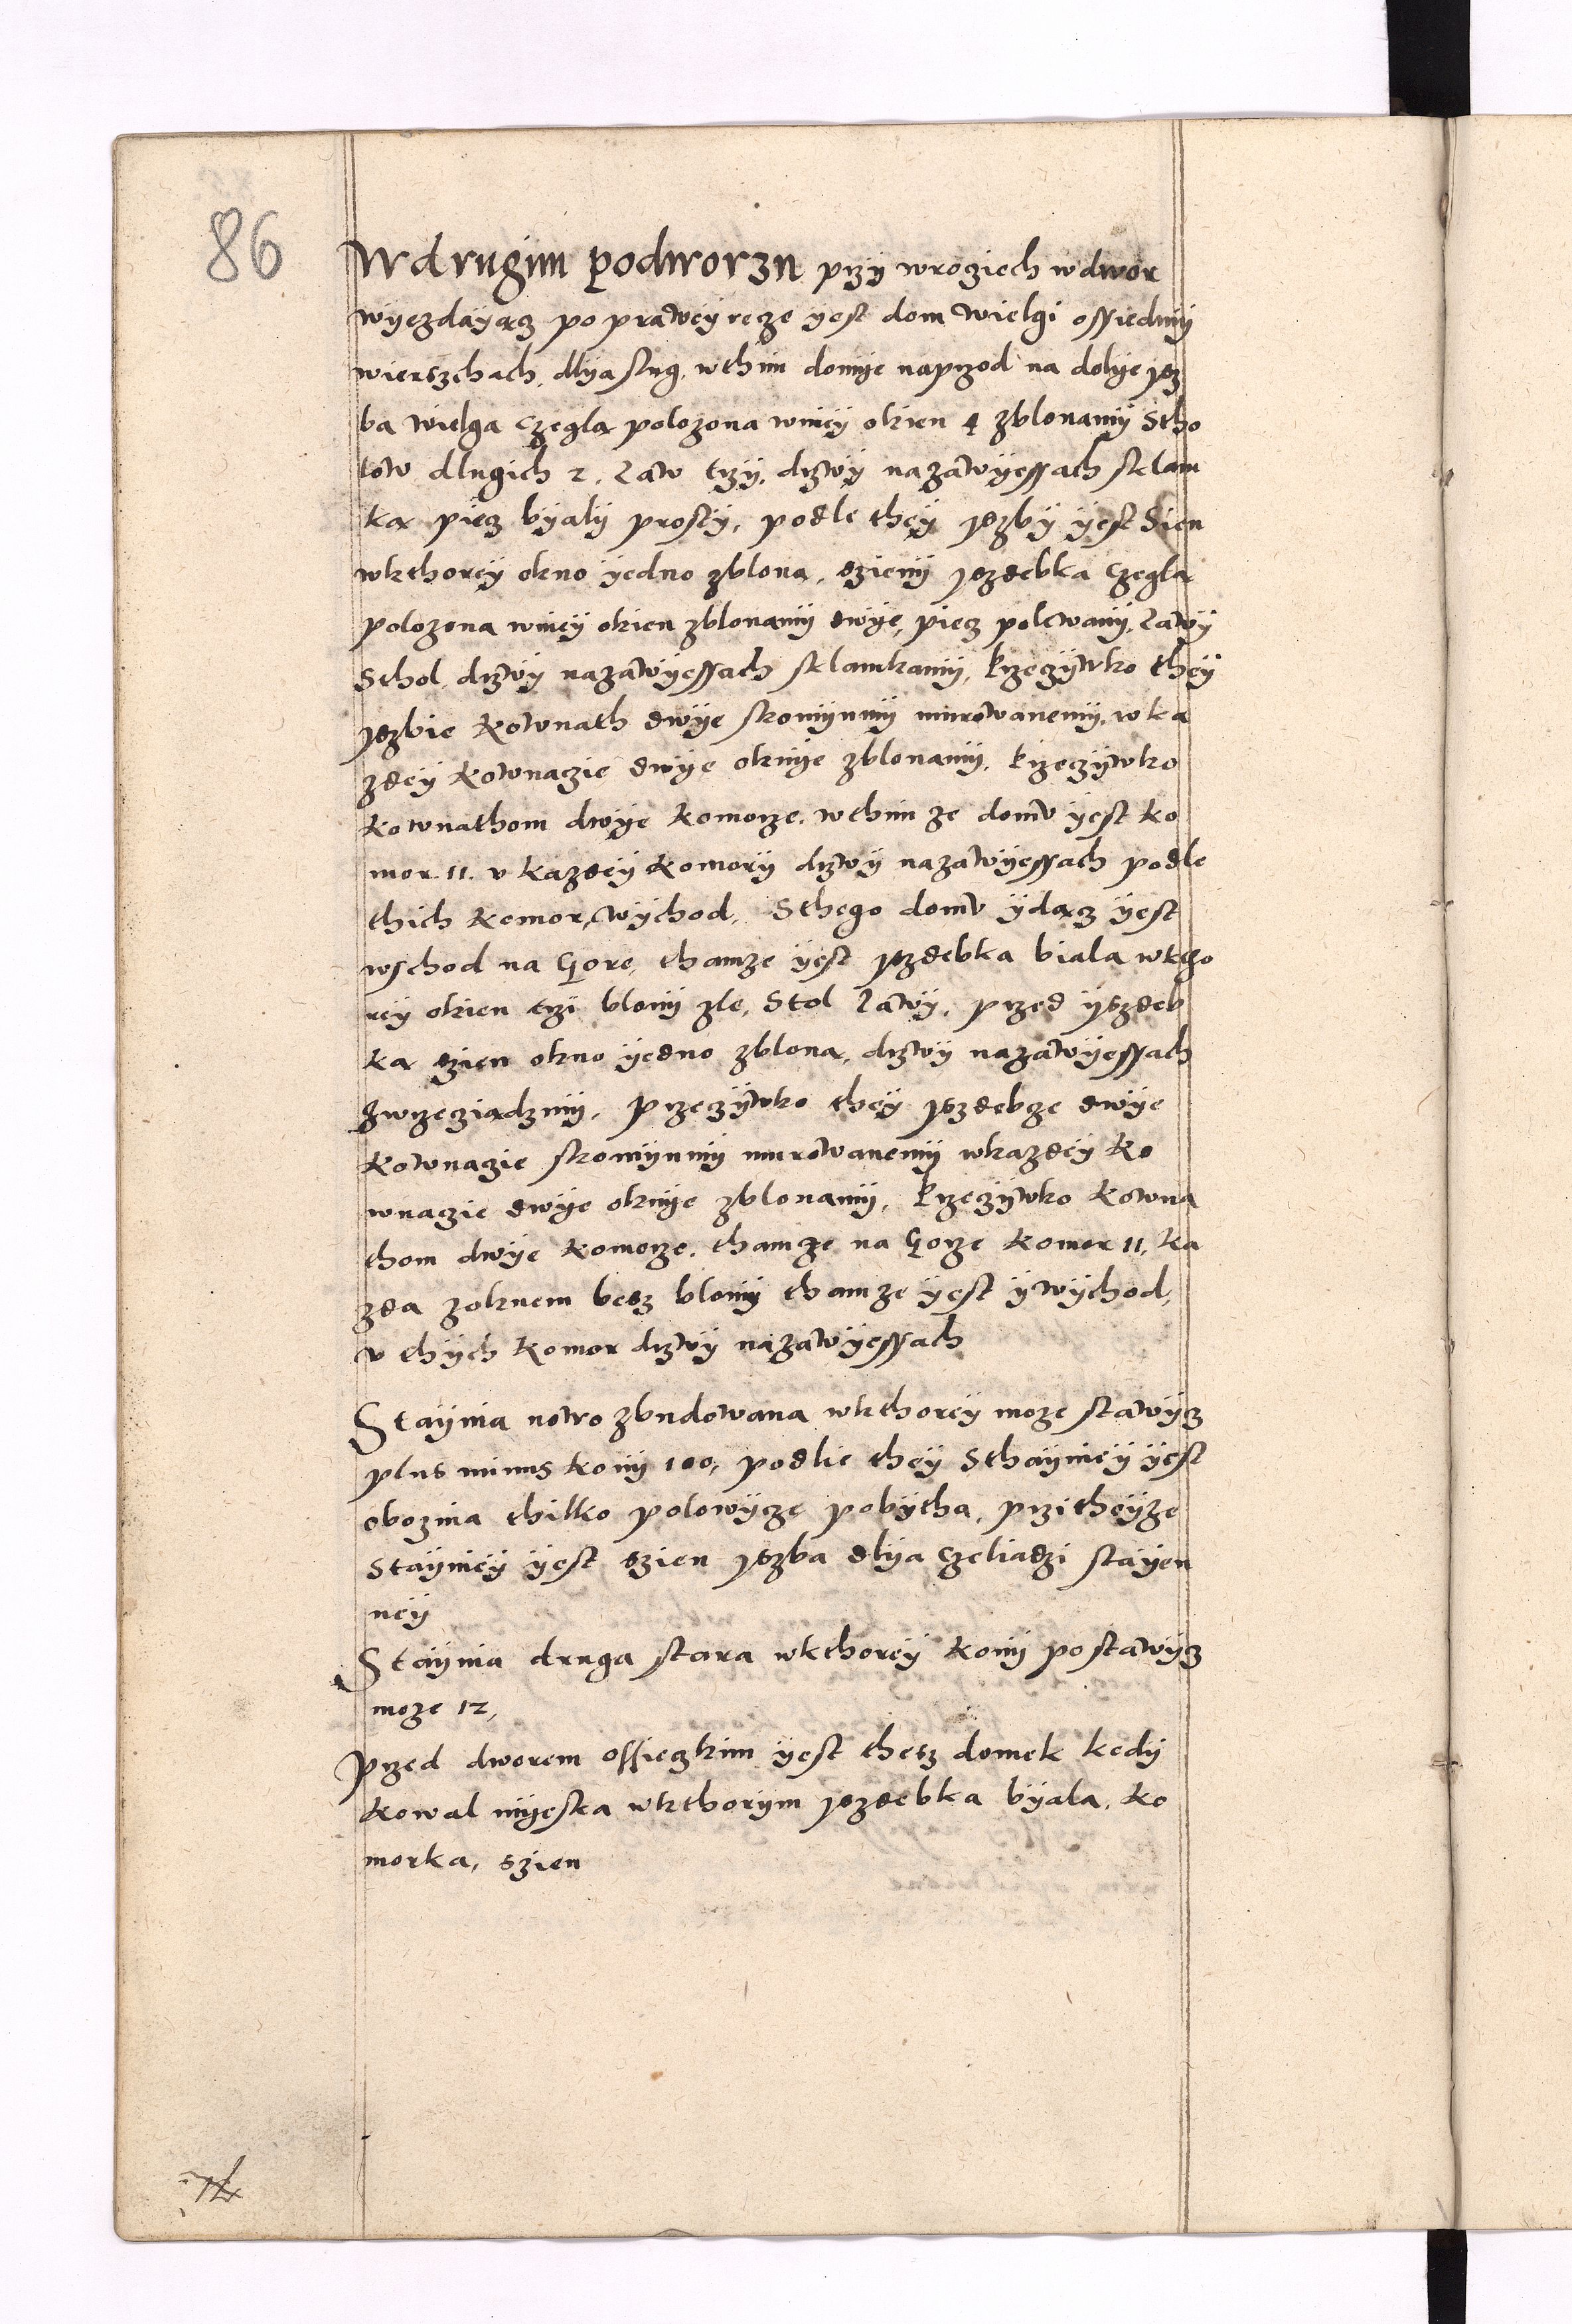 86
W drugim podworzu przy wrocziech w dwor
wyezdayącz po prawey recze yest dom wielgi o ssiedmy
wierszchach, dlya slug, w thim domye naprzod na dolye ysz
ba wielga czegłą polozona w niey okien 4 z blonamy Stho
low dlugich 2. Law trzy, drzwy na zawyessach s klam
ką piecz byaly prosty, podle they yszby yest Sien
w kthorey okno yedno z bloną, szieny yszdebka czegłą
polozona w niey okien z blonamy dwye, piecz polewany, Lawy
Sthol, drzwy na zawyessach s klamkamy, Przeczywko they
yszbie Kownath dwye s komynmy murowanemy, w ka
zdey Kownaczie dwye oknye z blonamy, Przeczywko
Kownathom dwye Komorze, w thim ze domv yest ko
mor 11. v kazdey Komory drzwy na zawyessach podle
thich Komor, wychod, S thego domv ydącz yest
wschod na Gore, thamze yest yszdebka biala w ktho
rey okien trzi blony zle, Stol Lawy, przed yszdeb
ką szien okno yedno z bloną, drzwy na zawyessach
z wrzecziądzmy, Przeczywko they yszdebcze dwye
Kownaczie s komynmy murowanemy w kazdey Ko
wnaczie dwye oknye z blonamy, Przeczywko Kowna
thom dwye Komorze, thamze na Gorze Komor 11, Ka
zda z oknem besz blony thamze yest y wychod,
v thych Komor drzwy na zawyessach
Staynia nowo zbudowana w kthorey moze stawycz
plus minus kony 100, podlie they Sthayniey yest
oboznia thilko polowycze pobytha, przi theyze
Stayniey yest szien yszba dlya czeliadzi stayen
ney
Staynia druga stara w kthorey kony postawycz
moze 12,
Przed dworem ossieczkim yest thesz domek kedy
kowal myeska w kthorym yszdebka byala, Ko
morka, szien